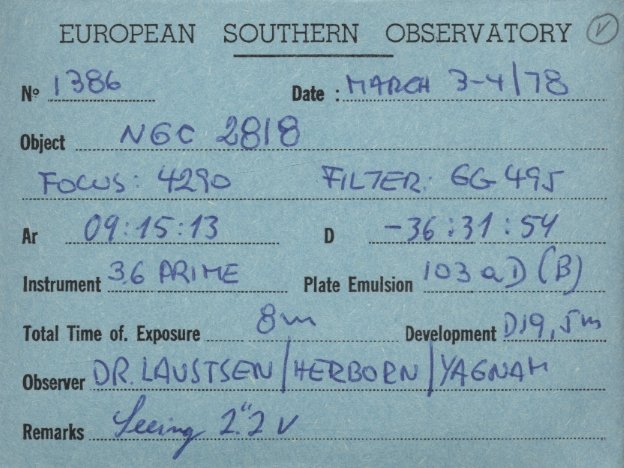 EUROPEAN SOUTHERN OBSERVATORY V
Nº 1386 Date : MARCH 3-4/78
Object NGC 2818
FOCUS: 4290 FILTER: GG 495
Ar 09:15:13 D -36:31:54
Instrument 3.6 PRIME Plate Emulsion 103 a D (B)
Total Time of. Exposure 8m Development D19, 5m
Observer DR. LAUSTSEN/HERBORN/YAGNAM
Remarks Seeing 2".2 V